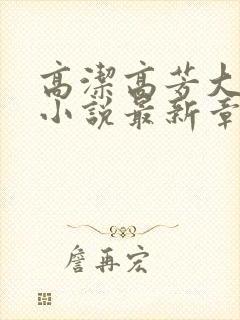 高潔高芳大
小說最新章
詹再宏